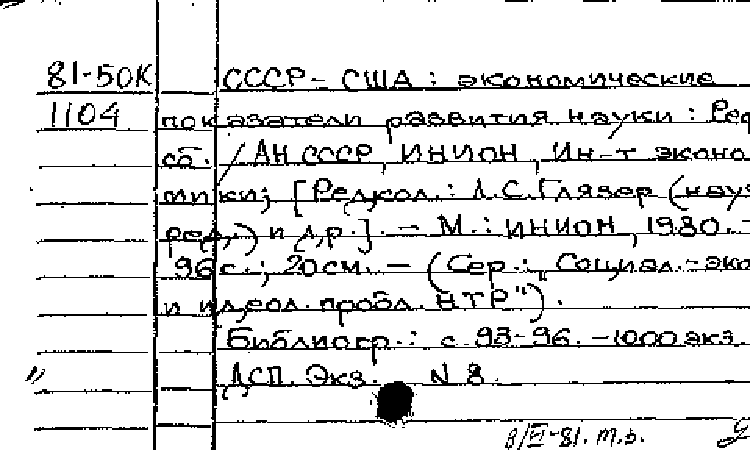 81-50К СССР - США : экономические
1104 показатели развития науки : Реф
сб. / АН СССР, ИНИОН, Ин-т эконо
мики; [Редкол.: Л.С.Глязер (науч
ред.) и др.]. - М.: ИНИОН, 1980. -
96 с.; 20 см. - (Сер.: "Социал.-эко
и идеол. пробл. НТР").
Библиогр.: с. 93-96. - 1000 экз.
ДСП. Экз. N 8.
т.э.